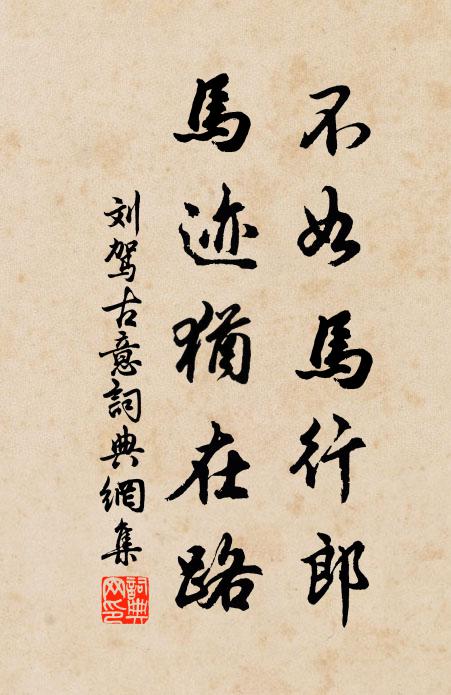 不如馬行郎
馬迹猶在路
刘駕古意詞典網集
詞典网印